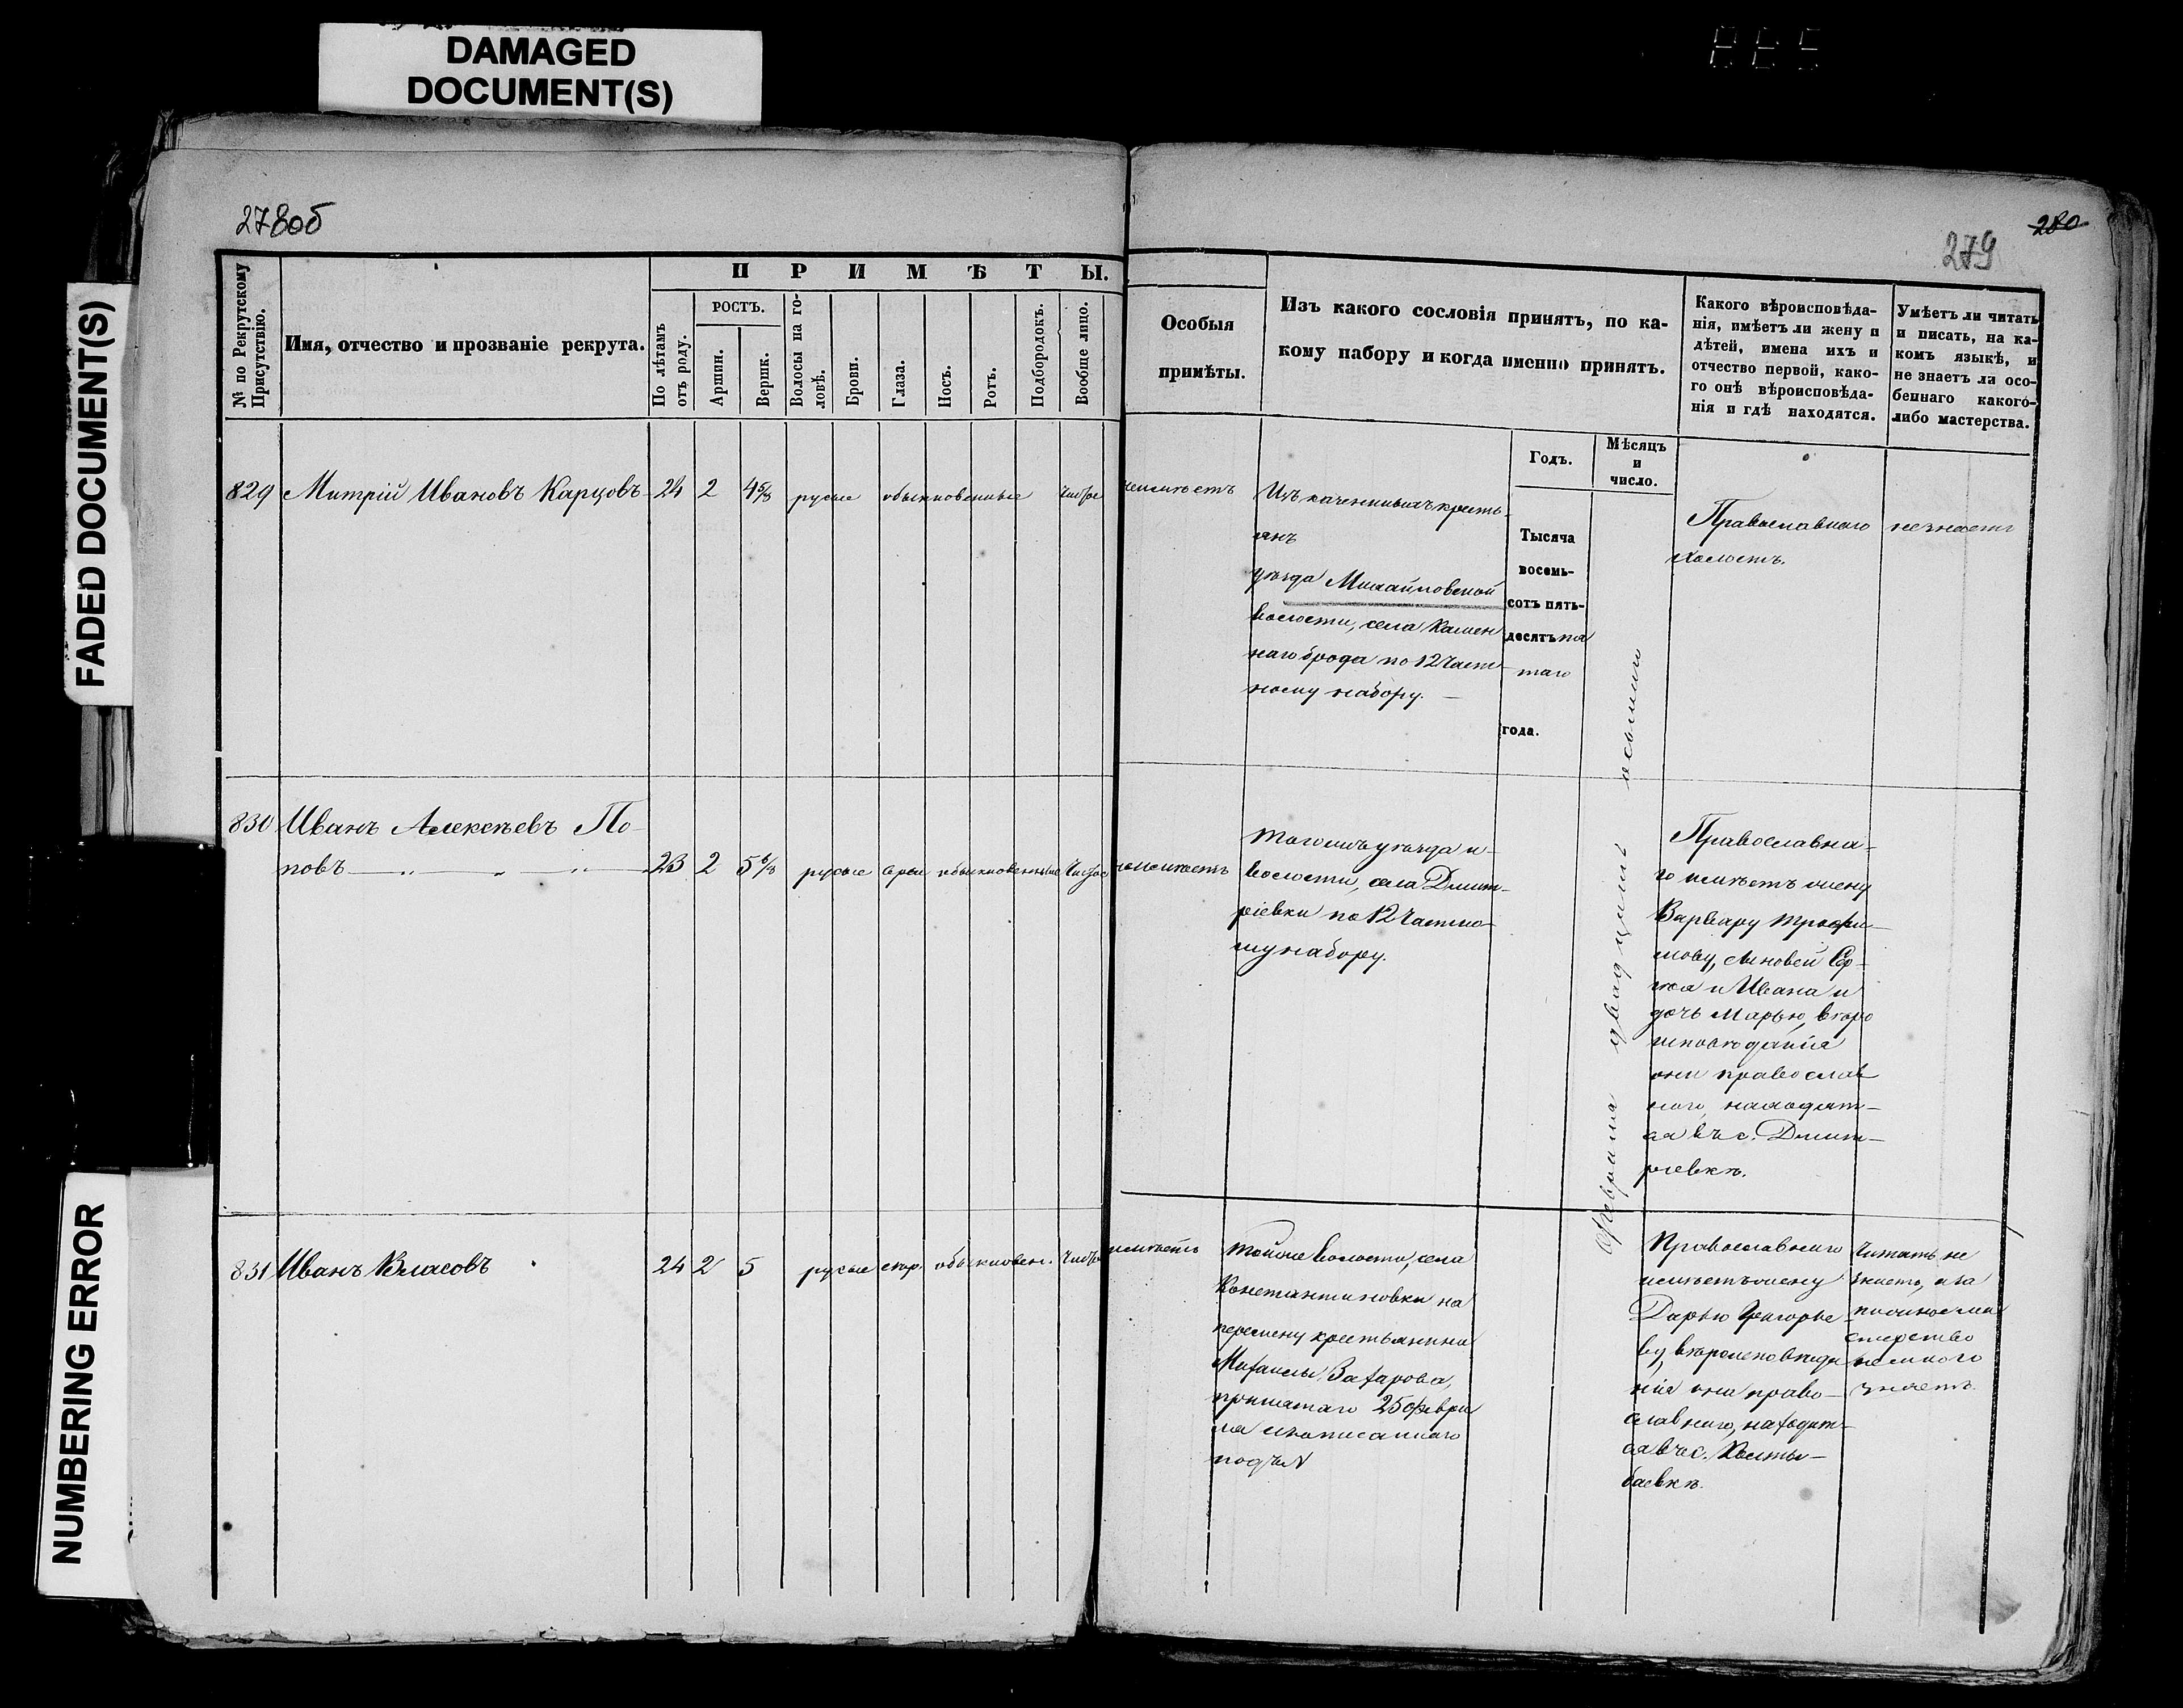 DAMAGED
DOCUMENT(S)
FADED DOCUMENT(S)
NUMBERING ERROR
278об
280
279
№ по Рекрутскому
Присутствію.
Имя, отчество и прозваніе рекрута.
ПРИМѢТЫ.
По лѣтамъ
отъ роду.
РОСТЪ.
Аршин.
Вершк.
Волосы на го-
ловѣ.
Брови.
Глаза.
Носъ.
Ротъ.
Подбородокъ.
Вообще лицо.
Особыя
примѣты.
Изъ какого сословія принятъ, по ка-
кому набору и когда именно принятъ.
Какого вѣроисповѣда-
нія, имѣетъ ли жену и
дѣтей, имена ихъ и
отчество первой, како-
го онѣ вѣроисповѣда-
нія и гдѣ находятся.
Умѣетъ ли читать
и писать, на ка-
комъ языкѣ, и
не знаетъ ли осо-
беннаго какого-
либо мастерства.
Годъ.
Мѣсяцъ
и
число.
829 Митрій Ивановъ Карцовъ 24 2 4 5/8 русые обыкновенные чистое неимѣетъ
Изъ казенныхъ кресть-
янъ
уѣзда Михайловской
волости, села Камен
наго брода по 12 Част-
ному набору. —
Тысяча
восемь-
сотъ пять-
десять пя
таго
года.
Февраля двадцать осьмаго
Православнаго
холостъ.
незнаетъ
830 Иванъ Алексѣевъ По-
повъ 23 2 5 6/8 русые серые обыкновенные чистое неимѣетъ
Тогожъ уѣзда и
волости, села Дмит-
ріевки по 12 Частно-
му набору.
Православна-
го имѣетъ жену
Варвару Трофи-
мову, сыновей Сер-
гея и Ивана и
дочь Марью, вѣро
исповѣданія
они православ
наго, находят-
ся въ с. Дмит-
ріевкѣ.
831 Иванъ Власовъ 24 2 5 русые сѣр. обыкновен. чистое неимѣетъ
Тойже волости, села
Константиновки на
перемену крестьянина
Михаилы Захарова,
принятаго 25 Февра
ля и записаннаго
подъ №
Православнаго
имѣетъ жену
Дарью Григорье
ву, вѣроисповѣда
нія они право-
славнаго, находят-
ся въ с.
Читать не
знаетъ
немного
знаетъ.